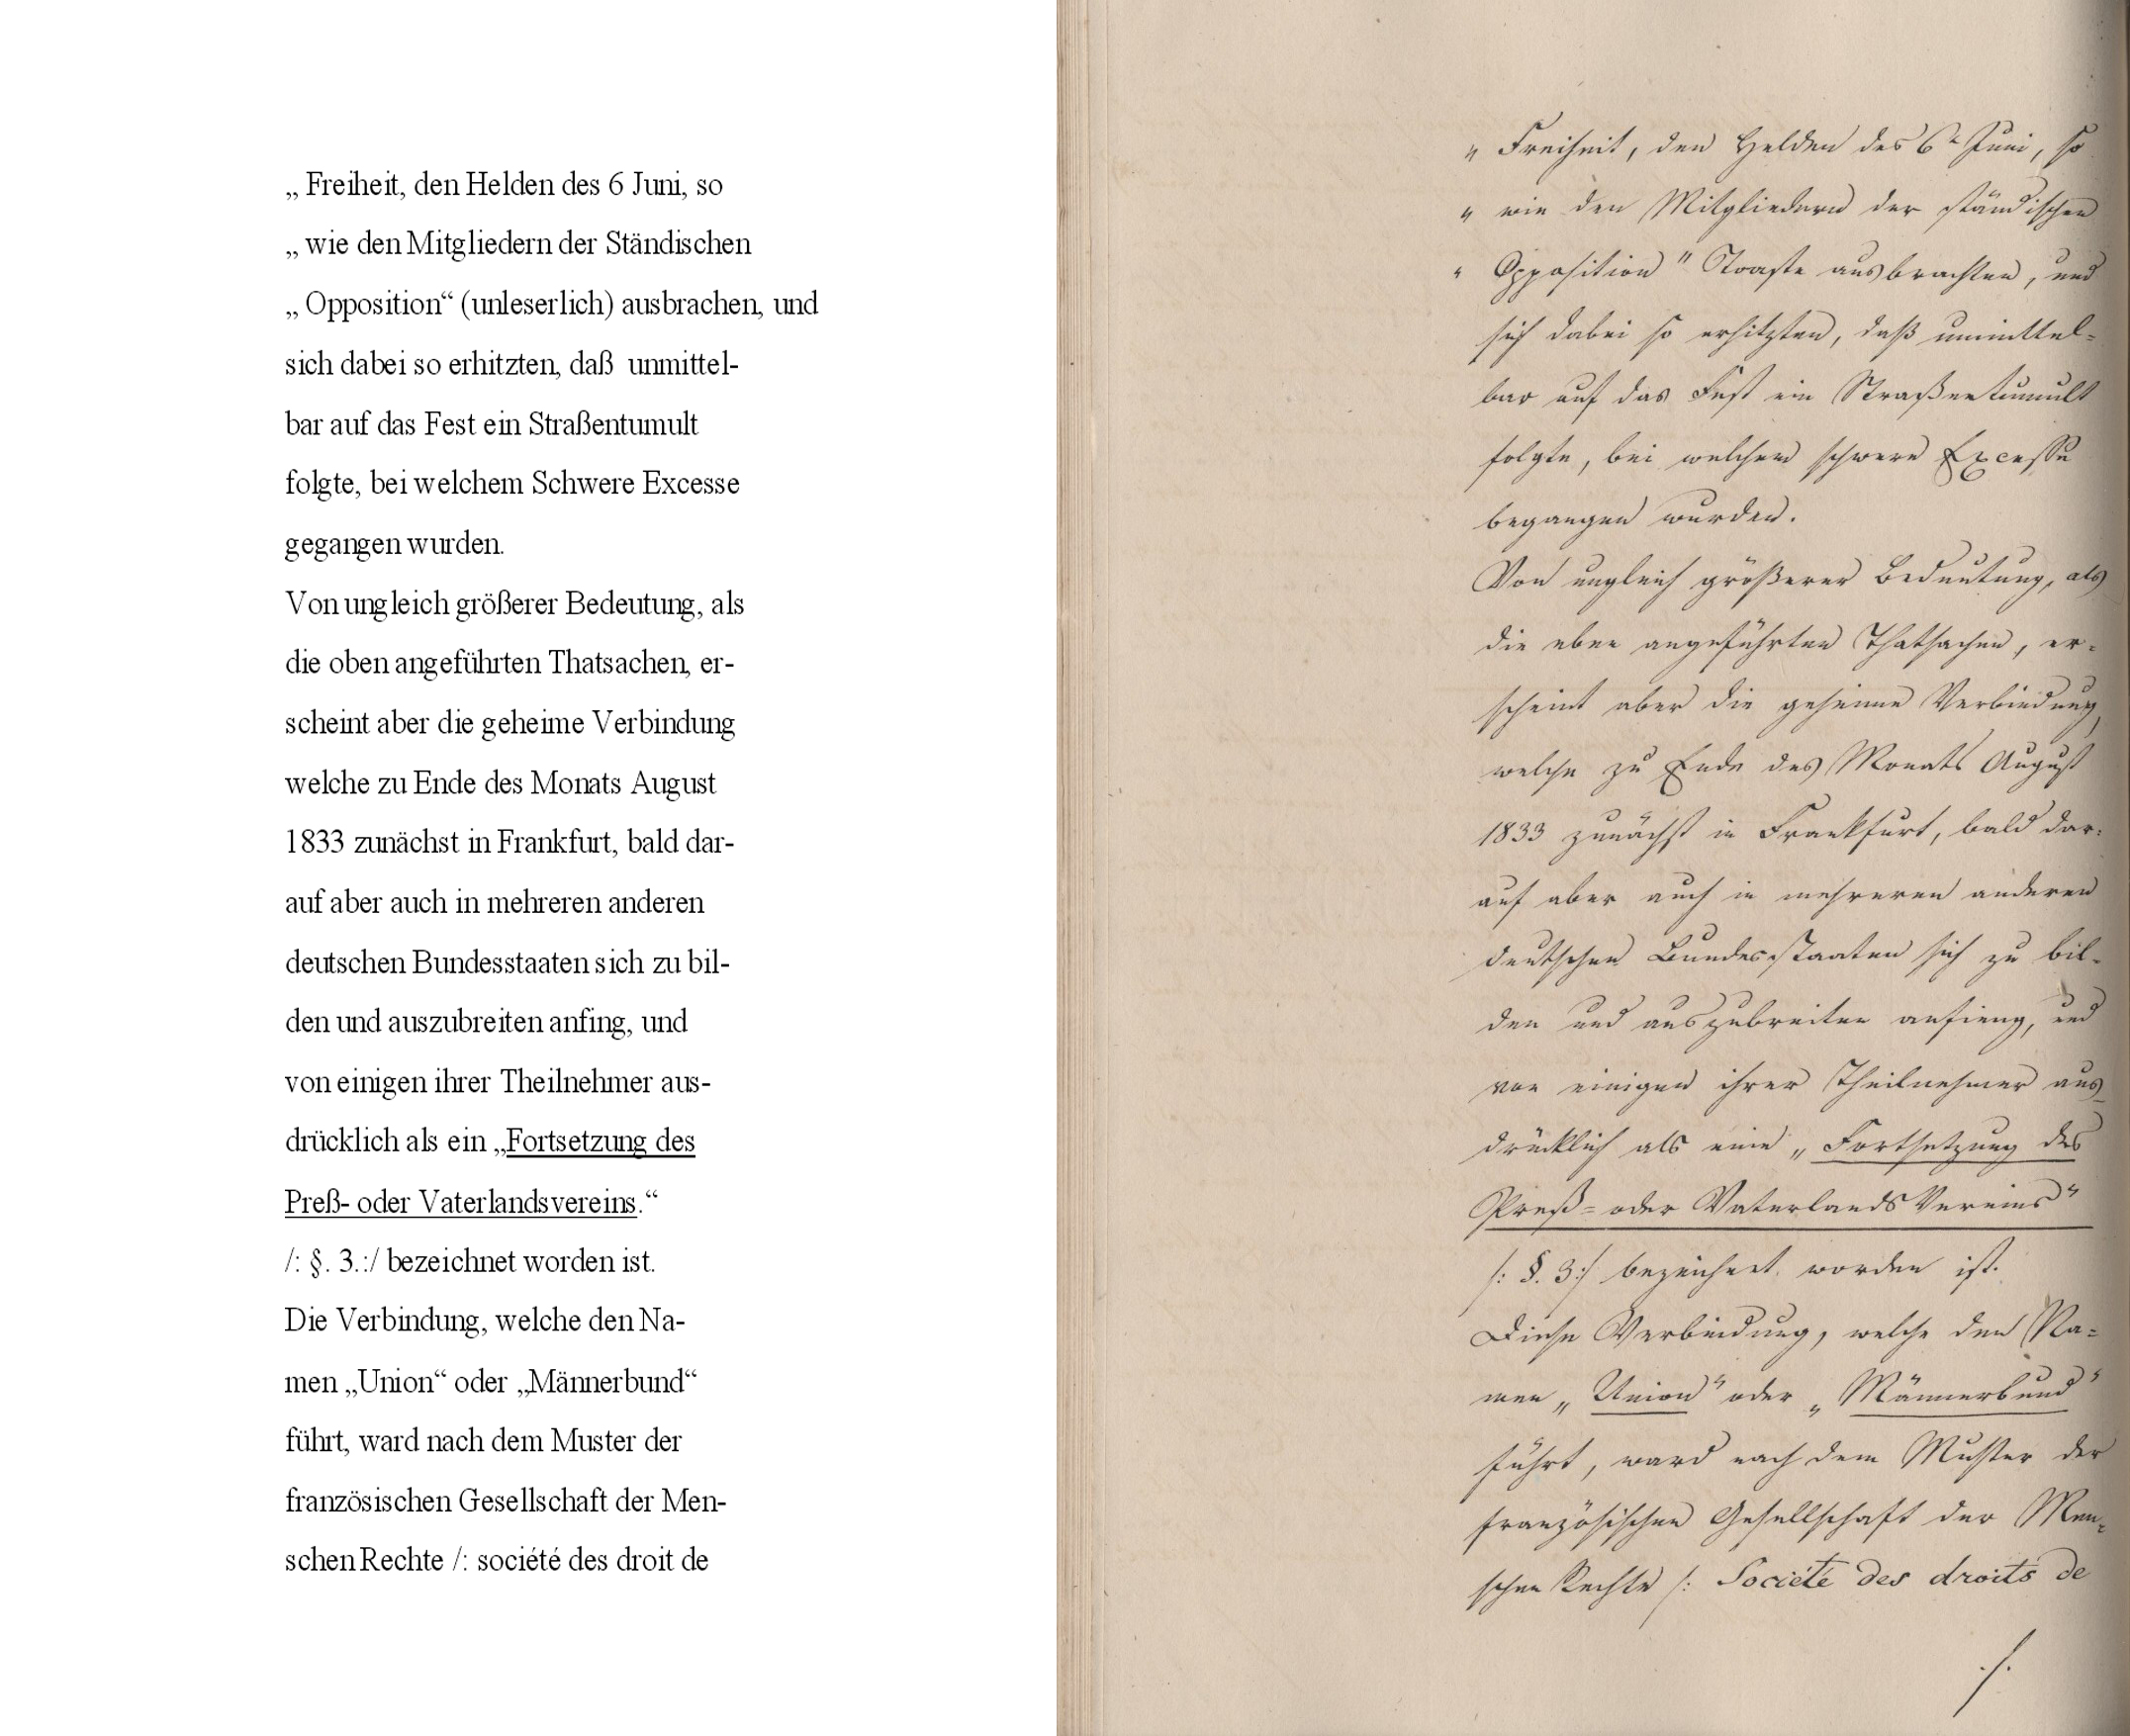 „ Freiheit, den Helden des 6 Juni, so
„ wie den Mitgliedern der Ständischen
„ Opposition“ (unleserlich) ausbrachen, und
sich dabei so erhitzten, daß unmittel-
bar auf das Fest ein Straßentumult
folgte, bei welchem Schwere Excesse
gegangen wurden.
Von ungleich größerer Bedeutung, als
die oben angeführten Thatsachen, er-
scheint aber die geheime Verbindung
welche zu Ende des Monats August
1833 zunächst in Frankfurt, bald dar-
auf aber auch in mehreren anderen
deutschen Bundesstaaten sich zu bil-
den und auszubreiten anfing, und
von einigen ihrer Theilnehmer aus-
drücklich als ein „Fortsetzung des
Preß- oder Vaterlandsvereins.“
/: §. 3.:/ bezeichnet worden ist.
Die Verbindung, welche den Na-
men „Union“ oder „Männerbund“
führt, ward nach dem Muster der
französischen Gesellschaft der Men-
schen Rechte /: société des droit de
„ Freiheit, den Helden des 6t Juni, so
„ wie den Mitgliedern der ständischen
„ Opposition" Toaste ausbrachten, und
sich dabei so erhitzten, daß unmittel-
bar auf das Fest ein Straßentumult
folgte, bei welchem schwere Excesse
begangen wurden.
Von ungleich größerer Bedeutung, als
die eben angeführten Thatsachen, er-
scheint aber die geheime Verbindung,
welche zu Ende des Monats August
1833 zunächst in Frankfurt, bald dar-
auf aber auch in mehreren anderen
deutschen Bundesstaaten sich zu bil-
den und auszubreiten anfieng, und
von einigen ihrer Theilnehmer aus-
drücklich als eine „Fortsetzung des
Preß- oder Vaterlands Vereins“
/: §. 3:/ bezeichnet worden ist.
Diese Verbindung, welche den Na-
men „Union“ oder „Männerbund“
führt, ward nach dem Muster der
französischen Gesellschaft der Men-
schen Rechte /: Societé des droits de
./.